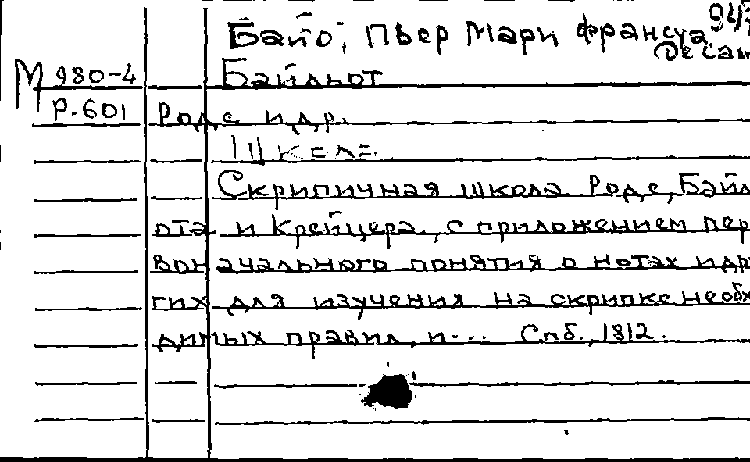 Байо, Пьер Мари Франсуа
947
де Сал
М 980-4 Байльот
Р-601 Роде и др.
Школа
Скрипичная школа Роде, Байл
ота и Крейцера, с приложением пер
воначального понятия о нотах и дру
гих для изучения на скрипке необх
димых правил, и... Спб., 1812.